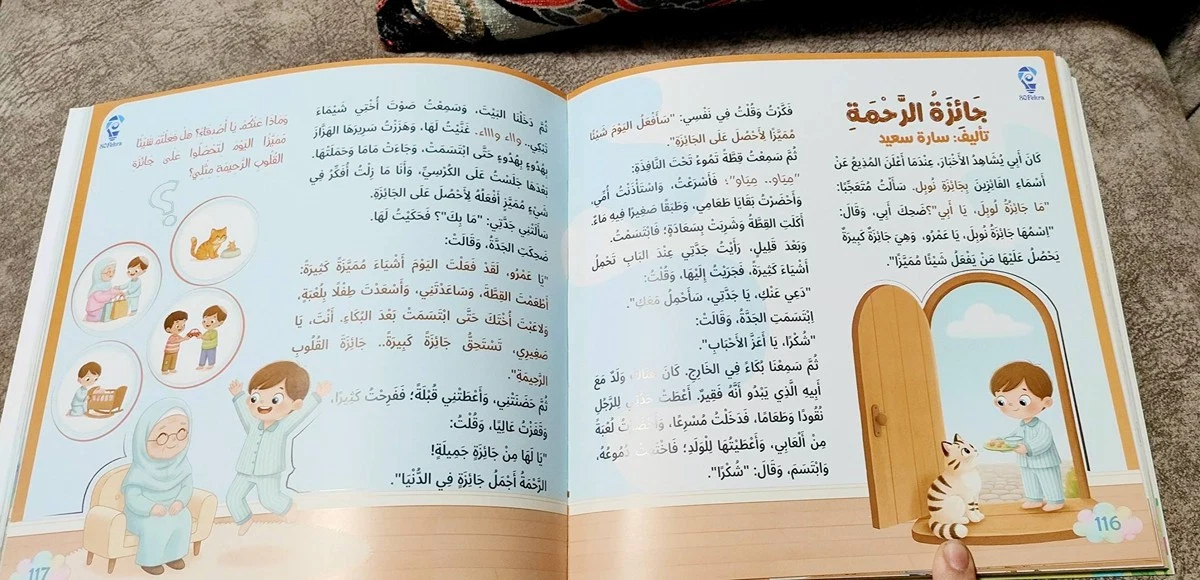 80Fekra
جَائِزَةُ الرَّحْمَةِ
تأليف: سارة سعيد
كَانَ أَبِي يُشَاهِدُ الأَخْبَارَ، عِنْدَمَا أَعْلَنَ المُذِيعُ عَنْ
أَسْمَاءِ الفَائِزِينَ بِجَائِزَةِ نُوبِل. سَأَلْتُ مُتَعَجِّبًا:
"مَا جَائِزَةُ لُوبِل، يَا أَبِي"؟ ضَحِكَ أَبِي، وَقَالَ:
"اِسْمُهَا جَائِزَةُ نُوبِل، يَا عَمْرُو، وَهِيَ جَائِزَةٌ كَبِيرَةٌ
يَحْصُلُ عَلَيْهَا مَنْ يَفْعَلُ شَيْئًا مُمَيَّزًا".
116
فَكَّرْتُ وَقُلْتُ فِي نَفْسِي: "سَأَفْعَلُ اليَوْمَ شَيْئًا
مُمَيَّزًا لِأَحْصُلَ عَلَى الجَائِزَةِ".
ثُمَّ سَمِعْتُ قِطَّةً تَمُوءُ تَحْتَ النَّافِذَةِ:
"مِيَاو.. مِيَاو"؛ فَأَسْرَعْتُ، وَاسْتَأْذَنْتُ أُمِّي،
وَأَحْضَرْتُ بَقَايَا طَعَامِي، وَطَبَقًا صَغِيرًا فِيهِ مَاءٌ.
أَكَلَتِ القِطَّةُ وَشَرِبَتْ بِسَعَادَةٍ؛ فَابْتَسَمْتُ.
وَبَعْدَ قَلِيلٍ، رَأَيْتُ جَدَّتِي عِنْدَ البَابِ تَحْمِلُ
أَشْيَاءَ كَثِيرَةً، فَجَرَيْتُ إِلَيْهَا، وَقُلْتُ:
"دَعِي عَنْكِ، يَا جَدَّتِي، سَأَحْمِلُ مَعَكِ".
اِبْتَسَمَتِ الجَدَّةُ، وَقَالَتْ:
"شُكْرًا، يَا أَعَزَّ الأَحْبَابِ".
ثُمَّ سَمِعْنَا بُكَاءً فِي الخَارِجِ. كَانَ هُنَاكَ وَلَدٌ مَعَ
أَبِيهِ الَّذِي يَبْدُو أَنَّهُ فَقِيرٌ. أَعْطَتْ جَدَّتِي لِلرَّجُلِ
نُقُودًا وَطَعَامًا، فَدَخَلْتُ مُسْرِعًا، وَأَحْضَرْتُ لُعْبَةً
مِنْ أَلْعَابِي، وَأَعْطَيْتُهَا لِلْوَلَدِ؛ فَاخْتَفَتْ دُمُوعُهُ،
وَابْتَسَمَ، وَقَالَ: "شُكْرًا".
ثُمَّ دَخَلْنَا البَيْتَ، وَسَمِعْتُ صَوْتَ أُخْتِي شَيْمَاءَ
تَبْكِي.. وااء وااااء. غَنَّيْتُ لَهَا، وَهَزَزْتُ سَرِيرَهَا الهَزَّازَ
بِهُدُوءٍ بِهُدُوءٍ حَتَّى ابْتَسَمَتْ، وَجَاءَتْ مَامَا وَحَمَلَتْهَا.
بَعْدَهَا جَلَسْتُ عَلَى الكُرْسِيِّ، وَأَنَا مَا زِلْتُ أُفَكِّرُ فِي
شَيْءٍ مُمَيَّزٍ أَفْعَلُهُ لِأَحْصُلَ عَلَى الجَائِزَةِ.
سَأَلَتْنِي جَدَّتِي: "مَا بِكَ"؟ فَحَكَيْتُ لَهَا.
ضَحِكَتِ الجَدَّةُ، وَقَالَتْ:
"يَا عَمْرُو، لَقَدْ فَعَلْتَ اليَوْمَ أَشْيَاءَ مُمَيَّزَةً كَثِيرَةً:
أَطْعَمْتَ القِطَّةَ، وَسَاعَدْتَنِي، وَأَسْعَدْتَ طِفْلًا بِلُعْبَةٍ،
وَلَاعَبْتَ أُخْتَكَ حَتَّى ابْتَسَمَتْ بَعْدَ البُكَاءِ. أَنْتَ، يَا
صَغِيرِي، تَسْتَحِقُّ جَائِزَةً كَبِيرَةً.. جَائِزَةَ القُلُوبِ
الرَّحِيمَةِ".
ثُمَّ حَضَنَتْنِي، وَأَعْطَتْنِي قُبْلَةً؛ فَفَرِحْتُ كَثِيرًا،
وَقَفَزْتُ عَالِيًا، وَقُلْتُ:
"يَا لَهَا مِنْ جَائِزَةٍ جَمِيلَةٍ!
الرَّحْمَةُ أَجْمَلُ جَائِزَةٍ فِي الدُّنْيَا".
80Fekra
وَمَاذَا عَنْكُمْ يَا أَصْدِقَاءُ؟ هَلْ فَعَلْتُمْ شَيْئًا
مُمَيَّزًا اليَوْمَ لِتَحْصُلُوا عَلَى جَائِزَةِ
القُلُوبِ الرَّحِيمَةِ مِثْلِي؟
117